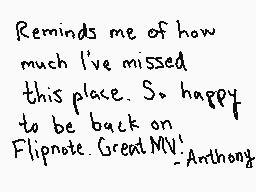 Reminds me of how
much I've missed
this place. So happy
to be back on
Flipnote. Great MV!
- Anthony